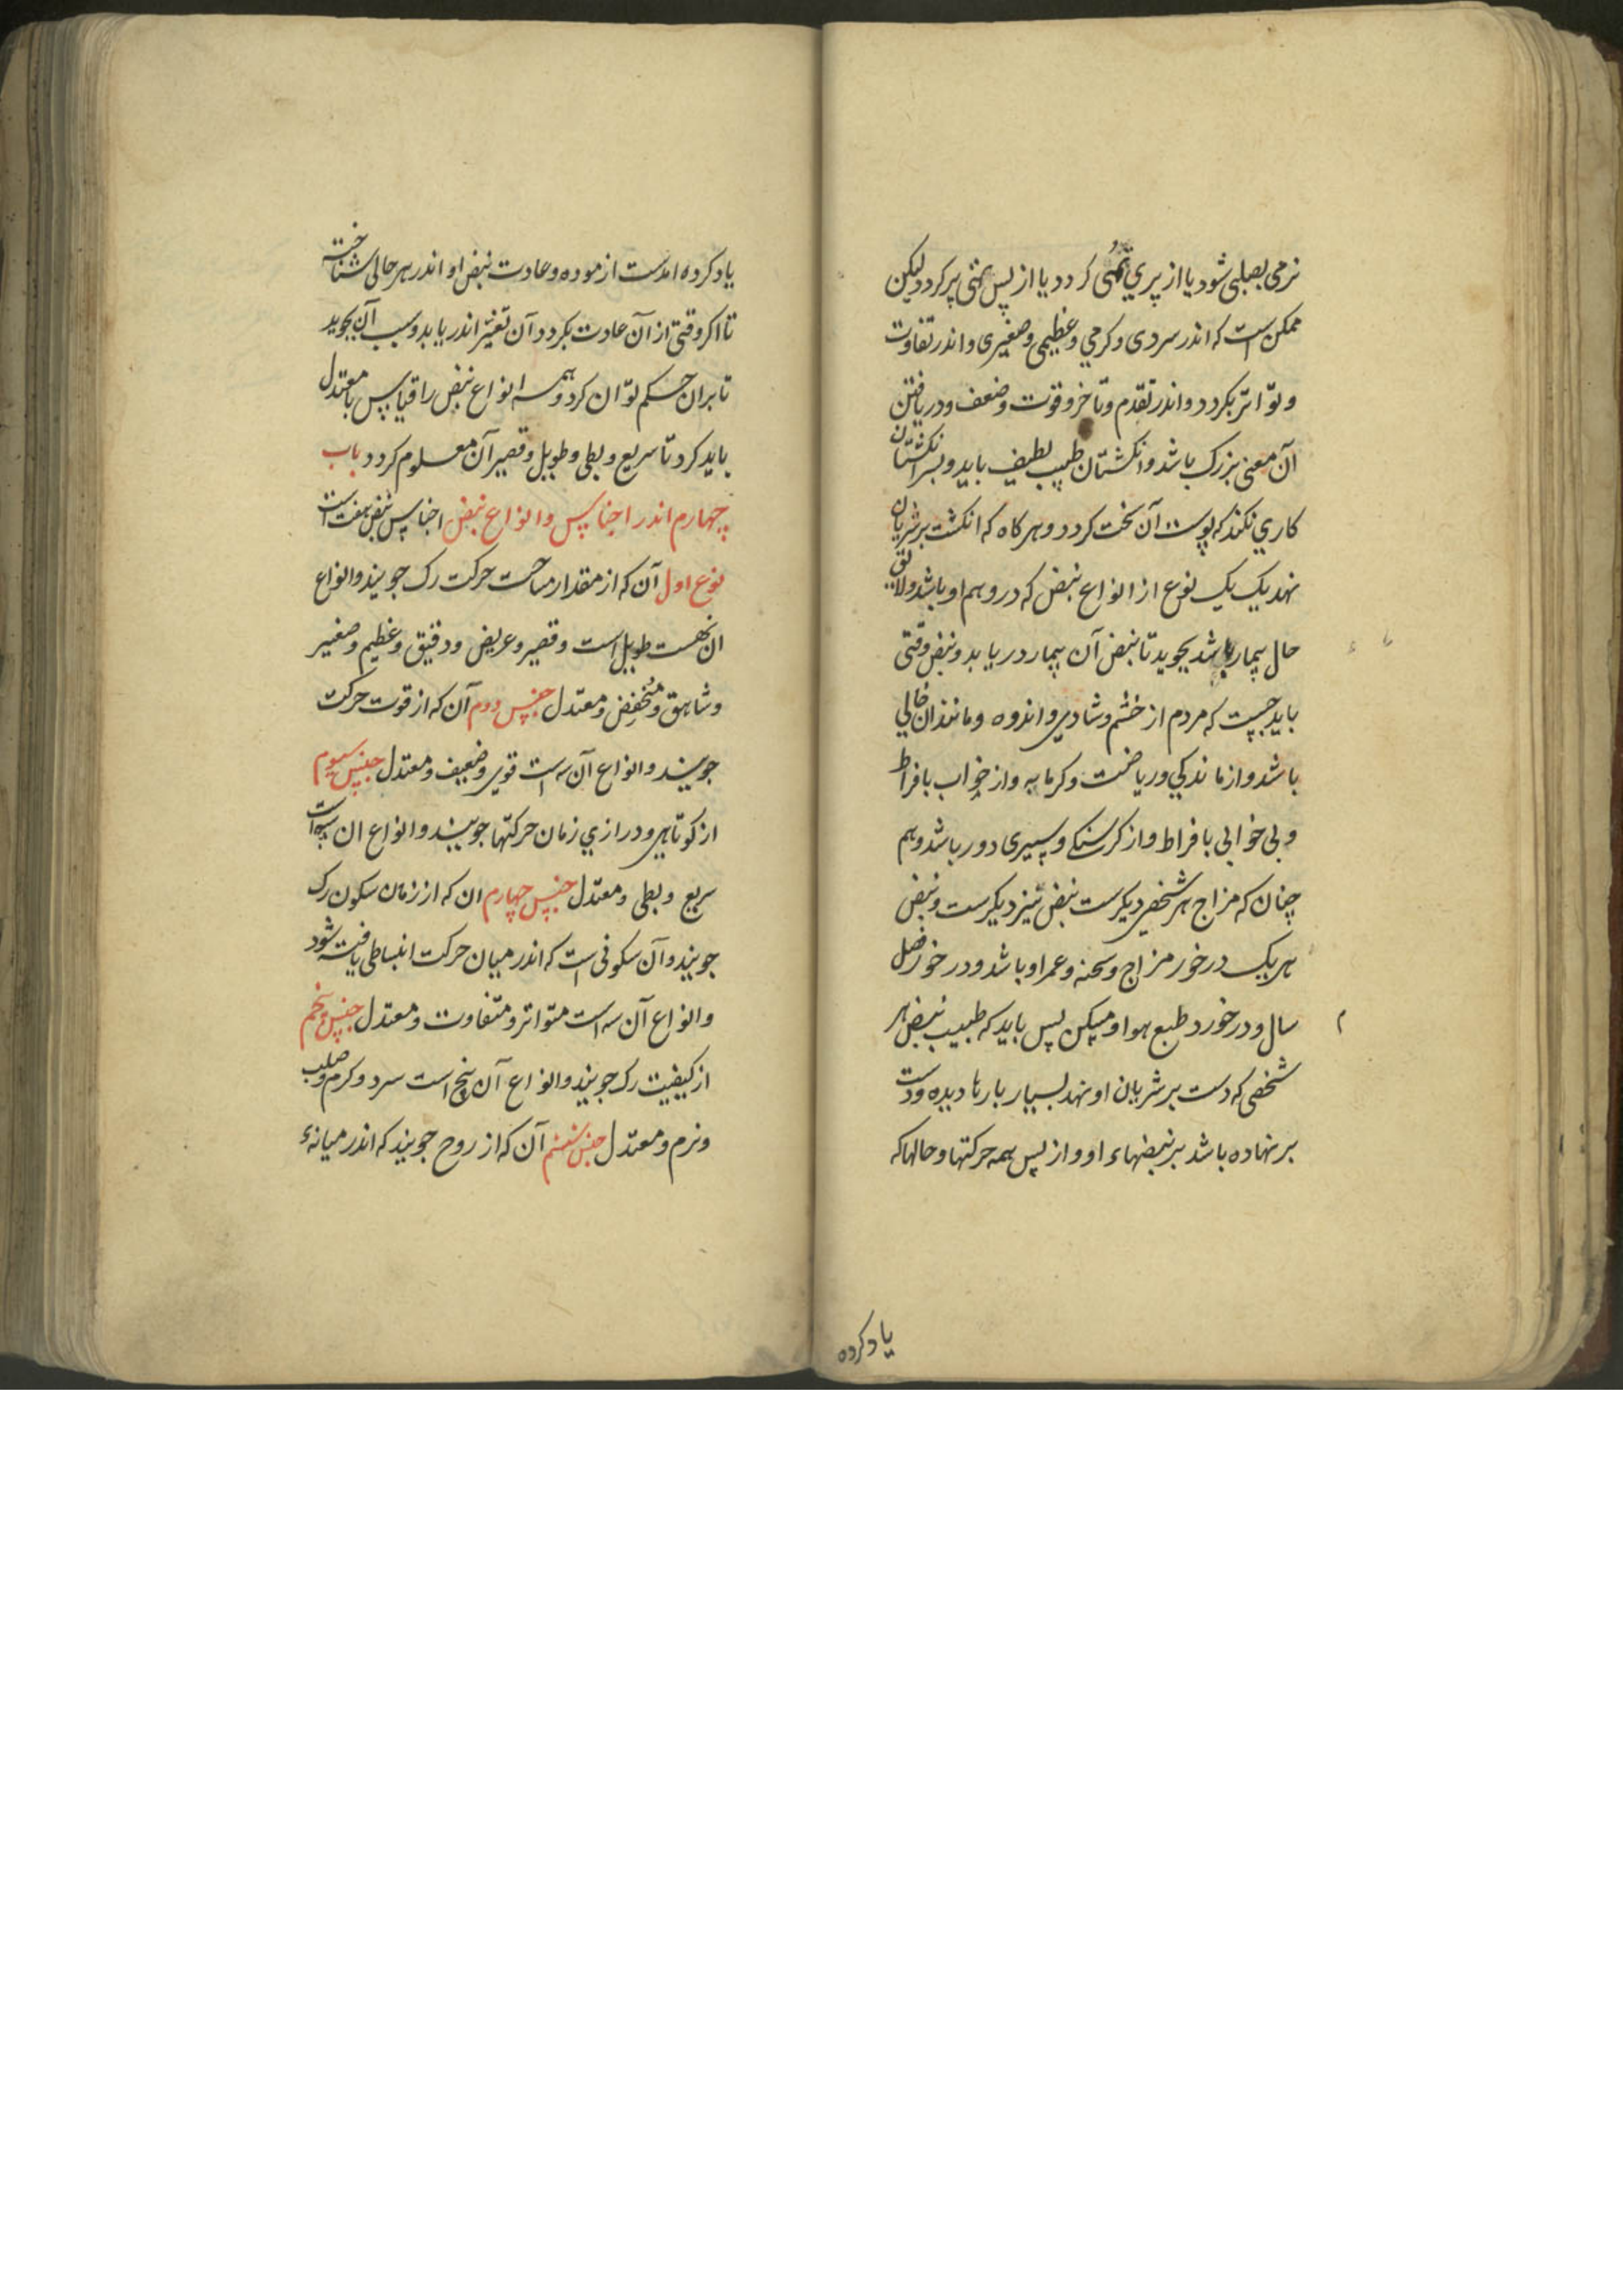 نرمی بصلبی شود یا از پری تهی کردد یا از پس تهی پر کردد لیکن
ممکن است که اندر سردی و کرمی و عظیمی و صغیری و اندر تفاوت
و تواتر بکردد و اندر تقدم و تاخر و قوت و ضعف و دریافتن
آن معنی بزرک باشد و انکشتان طبیب لطیف باید و بسر انکشتان
کاری نکند که پوست آن سخت کردد و هر کاه که انکشت بر شریان
نهد یک یک نوع از انواع نبض که در وهم او باشد و لایق
حال بیمار باشد بجوید تا نبض آن بیمار دریابد و نبض وقتی
باید جست که مردم از خشم و شادی و اندوه و مانند آن خالی
باشد و از ماندکی و ریاضت و کرمابه و از خواب بافراط
و بی خوابی بافراط و از کرسنکی و سیری دور باشد و هم
چنان که مزاج هر شخصی دیکرست نبض نیز دیکرست و نبض
هر یک در خور مزاج و سحنه و عمر او باشد و در خور فصل
سال و در خورد طبع هوا و مسکن پس باید که طبیب نبض هر
شخصی که دست بر شریان او نهد بسیار بارها دیده و دست
بر نهاده باشد بر نبضهاء او و از پس همه حرکتها و حالها که
یاد کرده
یاد کرده امدست ازموده و عادت نبض او اندر هر حالی شناخته
تا اکر وقتی از آن عادت بکردد آن تغیر اندر یابد و سبب آن بجوید
تا بران حکم توان کرد و همه انواع نبض را قیاس با معتدل
باید کرد تا سریع و بطی و طویل و قصیر آن معلوم کردد باب
چهارم اندر اجناس و انواع نبض اجناس نبض هفت است
نوع اول آن که از مقدار مساحت حرکت رک جویند و انواع
ان نهست طویل است و قصیر و عریض و دقیق و عظیم و صغیر
و شاهق و منخفض و معتدل جنس دوم آن که از قوت حرکت
جویند و انواع آن سه است قوی و ضعیف و معتدل جنس سیوم
از کوتاهی و درازی زمان حرکتها جویند و انواع ان سه است
سریع و بطی و معتدل جنس چهارم ان که از زمان سکون رک
جویند و آن سکونی است که اندر میان حرکت انبساطی یافته شود
و انواع آن سه است متواتر و متفاوت و معتدل جنس پنجم
از کیفیت رک جویند و انواع آن پنج است سرد و کرم و صلب
و نرم و معتدل جنس ششم آن که از روح جویند که اندر میانهٔ